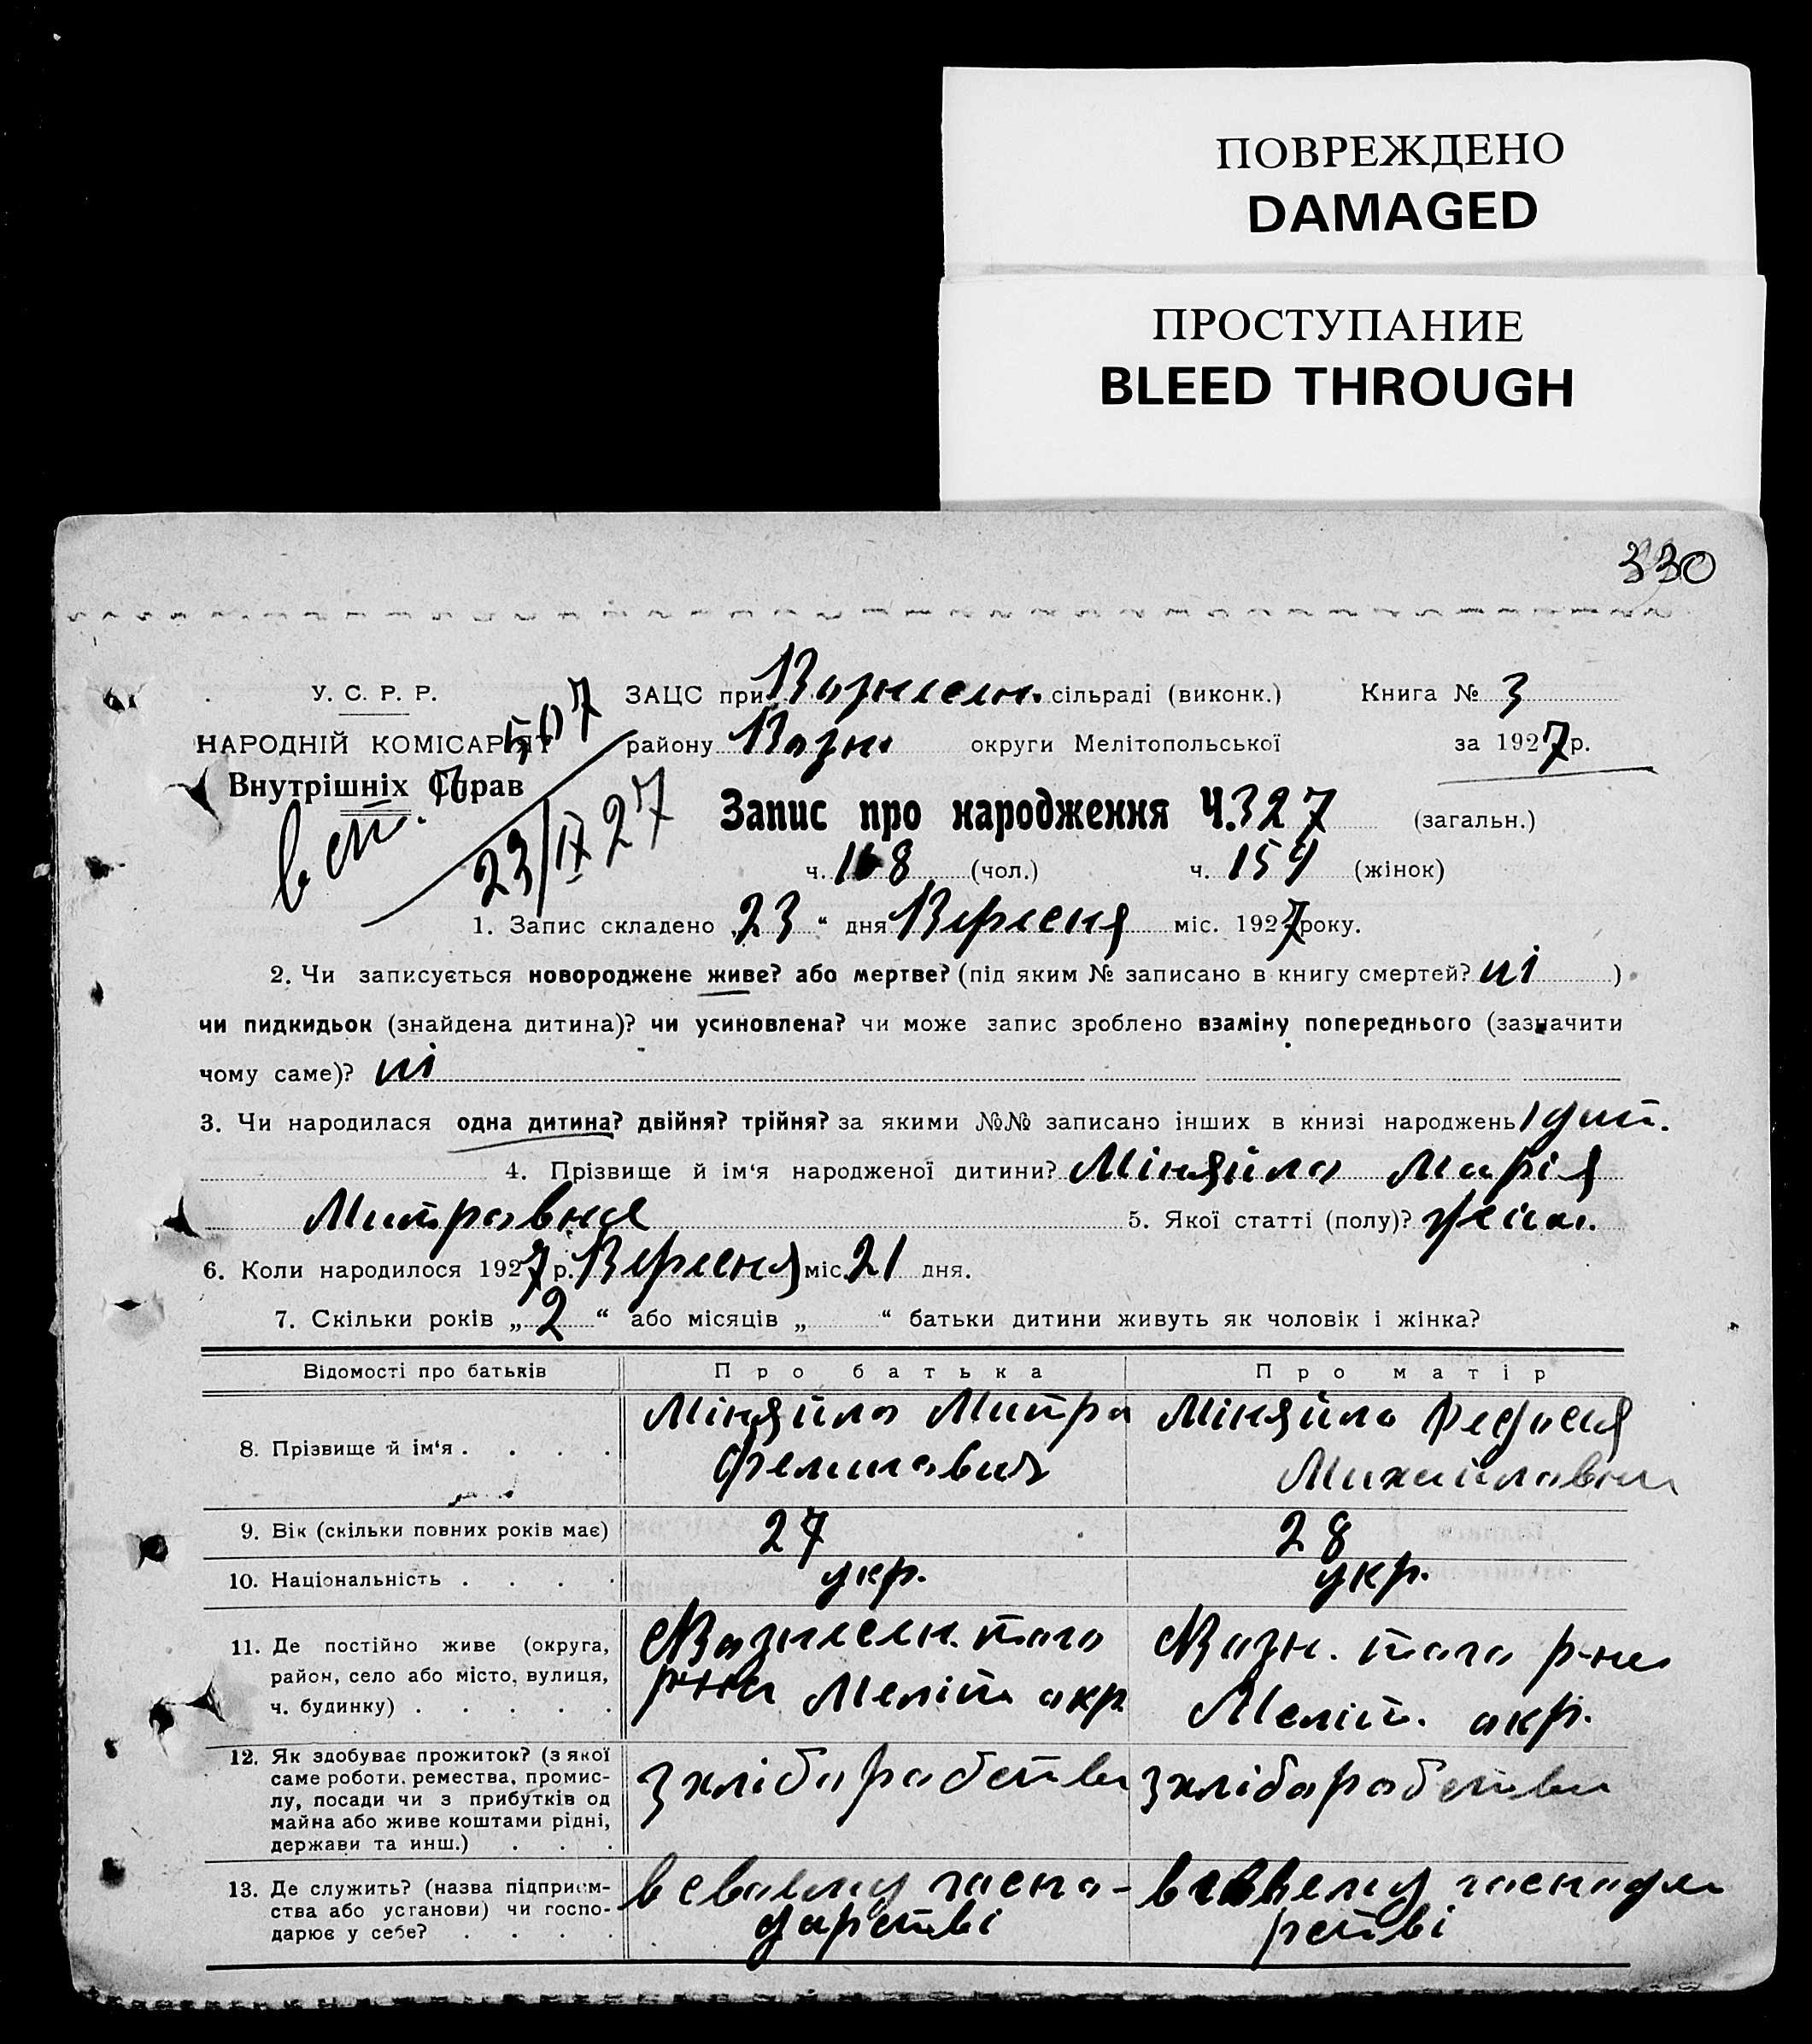 ПОВРЕЖДЕНО
DAMAGED
ПРОСТУПАНИЕ
BLEED THROUGH
330
У. С. Р. Р.
НАРОДНІЙ КОМІСАРІЯТ
Внутрішніх Справ
507
23/IX 27
ЗАЦС при Вознесен. сільраді (виконк.) Книга № 3
району Возн. округи Мелітопольської за 1927 р.
Запис про народження Ч. 327 (загальн.)
ч. 168 (чол.) ч. 159 (жінок)
1. Запис складено „23“ дня Вересня міс. 1927 року.
2. Чи записується новороджене живе? або мертве? (під яким № записано в книгу смертей? ні )
чи пидкидьок (знайдена дитина)? чи усиновлена? чи може запис зроблено взаміну попереднього (зазначити
чому саме)? ні
3. Чи народилася одна дитина? двійня? трійня? за якими №№ записано інших в книзі народжень 1 дит.
4. Прізвище й ім‘я народженої дитини? Міняйло Марія
Митровна 5. Якої статті (полу)? жіно.
6. Коли народилося 1927 р. Вересня міс. 21 дня.
7. Скільки років „ 2 “ або місяців „ “ батьки дитини живуть як чоловік і жінка?
Відомості про батьків Про батька Про матір
8. Прізвище й ім‘я . . . . Міняйло Митро Міняйло Федосія
Михайловна
9. Вік (скільки повних років має) 27 28
10. Національність . . . . укр. укр.
11. Де постійно живе (округа, Вознесен. того Возн. того р-на
район, село або місто, вулиця, р-на Меліт. окр. Меліт. окр.
ч. будинку) . . . . .
12. Як здобуває прожиток? (з якої
саме роботи, ремества, промис- з хліборобства з хліборобства
лу, посади чи з прибутків од
майна або живе коштами рідні,
держави та инш.) . . .
13. Де служить? (назва підприєм- в своєму госпо- в своєму господа
ства або установи) чи госпо- дарстві рстві
дарює у себе? . . . .